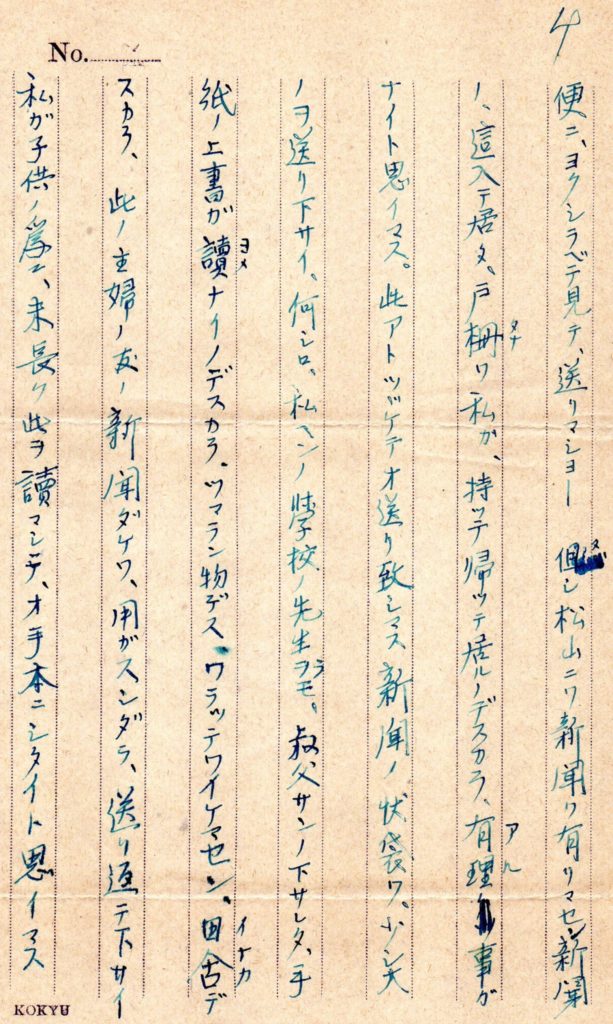 4
No.
便ニ、ヨクシラベテ見テ、送リマショー 但シ松山ニワ新聞ワ有リマセン新聞
ノ、這入テ居タ。戸棚ワ私ガ、持ッテ帰ッテ居ルノデスカラ、有理事ガ
ナイト思イマス。此アトツヅケテオ送リ致シマス新聞ノ状袋ワ、少シ大
ノヲ送リ下サイ、何シロ、私ヘンノ學校ノ先生ラモ。叔父サンノ下サレタ、手
紙ノ上書ガ讀ナイノデスカラ、ツマラン物デス、ワラッテワイケマセン、田舎デ
スカラ、此ノ主婦ノ友ノ新聞ダケワ、用ガスンダラ、送リ返テ下サイ
私ガ子供ノ為ニ、末長ク此ヲ讀マシテ、オ手本ニシタイト思イマス
タナ
アル
ヨメ
イナカ
KOKYU